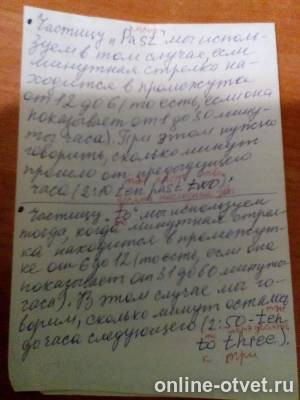 Частицу "Past" мы исполь-
зуем в том случае, если
минутная стрелка на-
ходится в промежутке
от 12 до 6 (то есть, если она
показывает от 1 до 30 мину-
ты часа). При этом нужно
говорить, сколько минут
прошло от предыдущего
часа (2:10 ten past two);
Частицу "to" мы используем
тогда, когда минутная стрел-
ка находится в промежут-
ке от 6 до 12 (то есть, если она
показывает от 31 до 60 минуты
часа). В этом случае мы го-
ворим, сколько минут осталось
до часа следующего (2:50 - ten
to three).
к три
online-otvet.ru